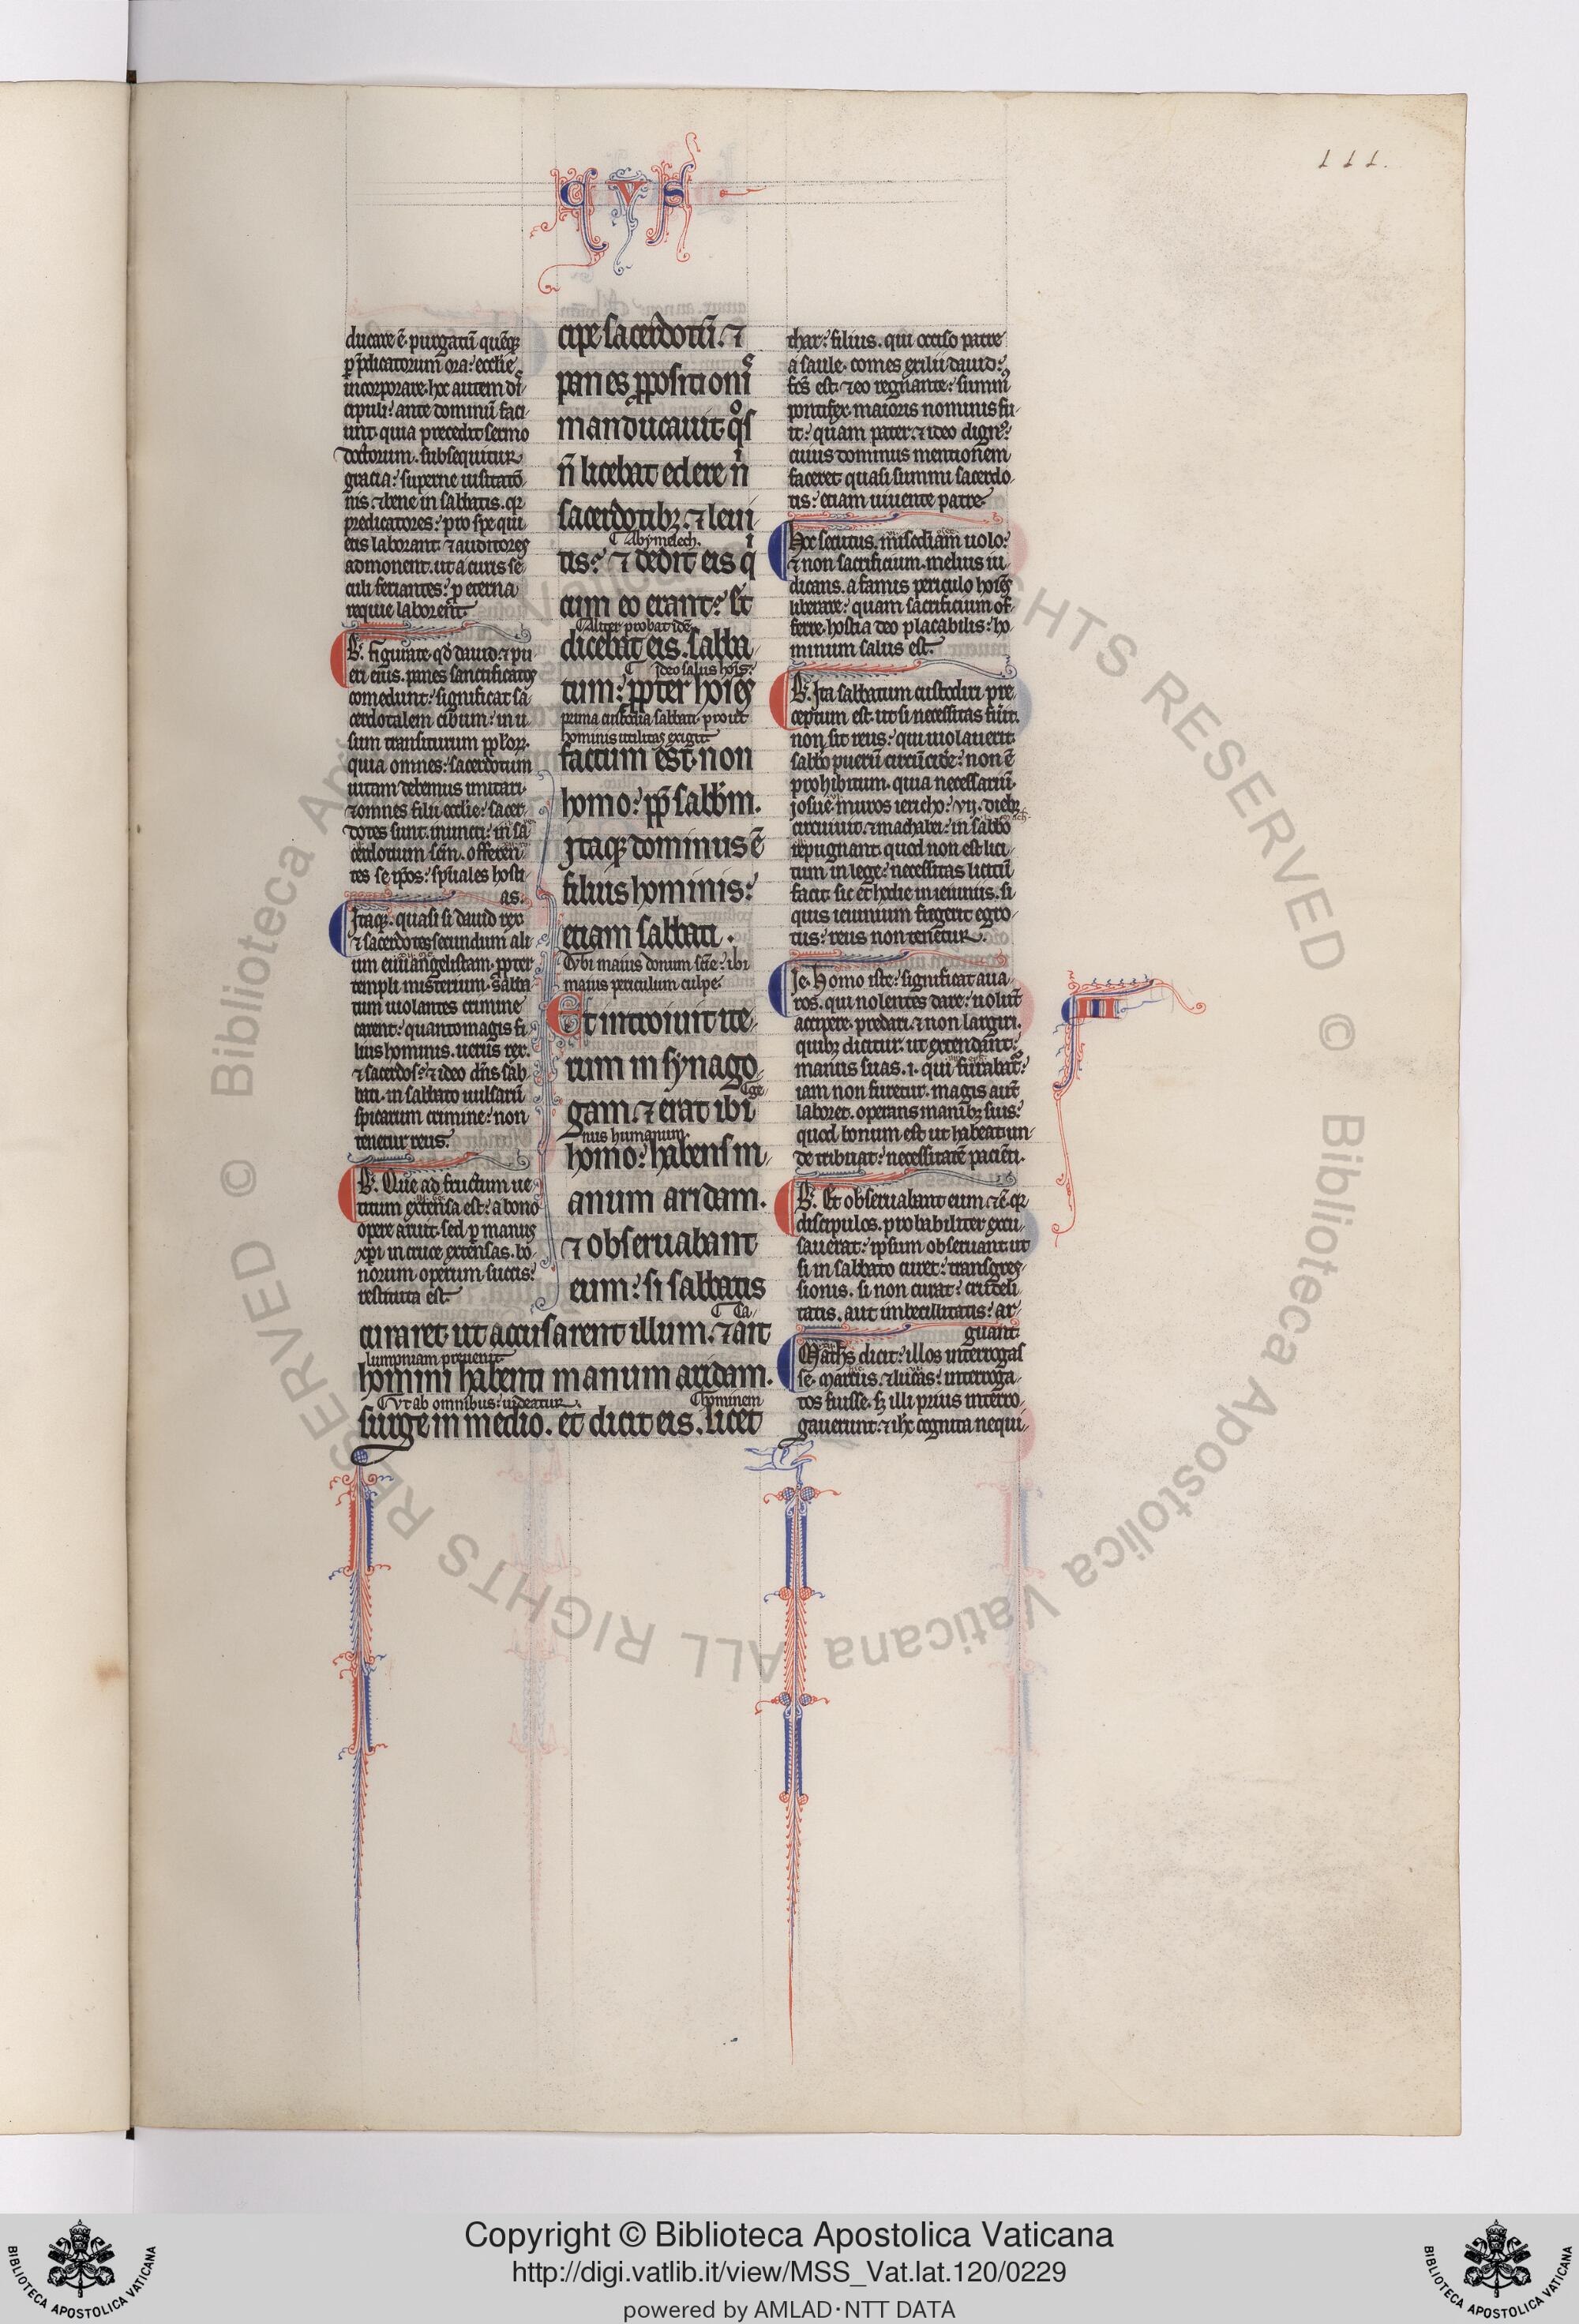 111.
CVS
ducare ē. purgatū quēq;
p p̄dicatorum ora: ecclīe
incorporare. hoc autem di
cipuli: ante dominū faci
unt. quia precedit sermo
doctorum. subsequitur
gracia: superne uisitatō
nis. ⁊ bene in sabbatis. qr
predicatores: pro spe qui
etis laborant. ⁊ auditores
admonent. ut a curis se
culi feriantes: p eterna
requie laborent
B. figurate qđ dauid. ⁊ pu
eri eius. panes sanctificatos
comedunt: significat sa
cerdotalem cibum: in u
sum transiturum pplor̄.
quia omnes: sacerdotum
uitam debemus imitari.
⁊ omnes filii ecclie: sacer
dotes sunt. inuncti: in sa
cerdotium sc̄m. offeren
tes se ip̄os: sp̄uales hosti
as.
Itaq;. quasi si dauid rex
⁊ sacerdotes secundum ali
um euuāngelistam. ppter
templi misterium. sabba
tum uiolantes crimine
carent: quanto magis fi
lius hominis. uerus rex.
⁊ sacerdos: ⁊ ideo dn̄s sab
bati. in sabbato uulsarū
spicarum crimine: non
tenetur reus.
B. Que ad fructum ue
titum extensa est: a bono
opere aruit. sed p manus
xp̄i in cruce extensas. bo
norum operum succis:
restituta est
cipe sacerdotū. ⁊
panes ppositionis
manducauit. qos
n̄ licebat edere ni
sacerdotibꝫ. ⁊ leui
Abymelech.
tis: ⁊ dedit eis qi
cum eo erant: Et
Aliter probat idē
dicebat eis. sabba
ideo salus hoīs:
tum: ppter hoīes
prima custodia sabbati. prout
hominis utilitas exigit
factum est. non
homo: pp̄ sabb̄m.
Itaq; dominus ē
filius hominis:
etiam sabbati.
Vbi maius donum sc̄e: ibi
maius periculum culpe
Et introiuit ite
rum in synago
Ge
gam. ⁊ erat ibi
nus humanum.
homo: habens m
anum aridam.
⁊ obseruabant
eum: si sabbatis
Ca
curaret. ut accusarent illum. ⁊ ait
lumpniam preuenit
homini habenti manum aridam.
Vt ab omnibus: uideatur. hominem
surge in medio. et dicit eis. licet
thar: filius. qui occiso patre
a saule. comes exilii dauid:
fc̄s est. ⁊ eo regnante: summi
pontifex. maioris nominis fu
it: quam pater. ⁊ ideo dign':
cuius dominus mentionem
faceret quasi summi sacerdo
tis: etiam uiuente patre
Hoc secutus. miścdiam uolo:
⁊ non sacrificium. melius iu
dicans. a famis periculo hoīes
liberare: quam sacrificium of
ferre. hostia deo placabilis: ho
minum salus est.
B. Ita sabbatum custodiri pre
ceptum est. ut si necessitas fūit.
non sit reus: qui uiolauerit
sabb̄o puerū circūcide: non ē
prohibitum. quia necessariū.
Iosue muros iericho: vij. diebꝫ
circuiuit. ⁊ machabei: in sabb̄o
repugnant. quod non est lici
tum in lege: necessitas licitū
facit. sic et hodie in ieiuniis. si
quis ieiunium fregerit egro
tus: reus non tenetur.
Je. Homo iste: significat aua
ros. qui nolentes dare: uolūt
accipere. predari. ⁊ non largiri.
quibꝫ dicitur. ut extendant:
manus suas. i. qui furabat̄:
iam non furetur. magis aut̄
laboret. operans manibꝫ suis:
quod bonum est. ut habeat un
de tribuat: necessitatē pacien̄ti.
B. Et obseruabant eum. ⁊ē. qr
discipulos. probabiliter excu
sauerat: ipsum obseruant. ut
si in sabbato curet: transgres
sionis. si non curat: crudeli
tatis. aut inbecillitatis: ar
guant.
Math̄s dicit: illos interrogas
se. marcus. ⁊ lucas: interroga
tos fuisse. sꝫ illi prius interro
gauerunt. ⁊ ihc̄ cognita nequi
Biblioteca Apostolica Vaticana ALL RIGHTS RESERVED ©
Copyright © Biblioteca Apostolica Vaticana
http://digi.vatlib.it/view/MSS_Vat.lat.120/0229
powered by AMLAD·NTT DATA
BIBLIOTECA APOSTOLICA VATICANA
BIBLIOTECA APOSTOLICA VATICANA